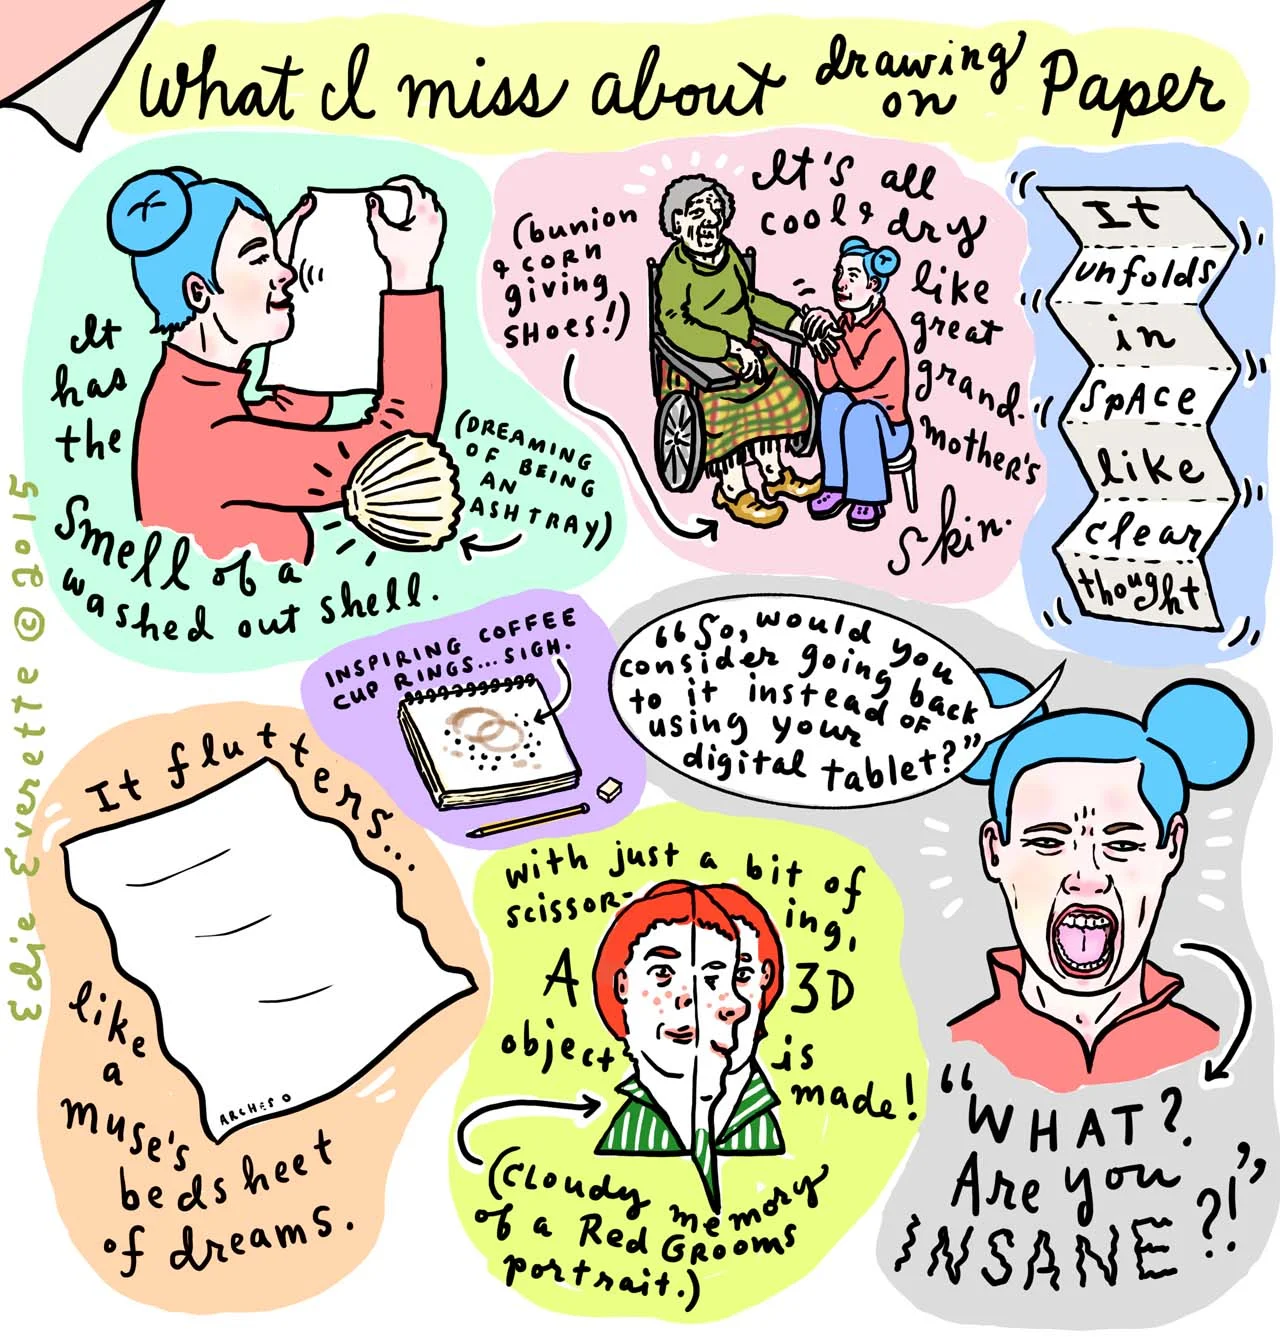 What I miss about drawing on Paper
It
has
the
Smell of a
washed out shell.
(DREAMING
OF BEING
AN
ASHTRAY)
(bunion
& CORN
giving
SHOES!)
It's all
cool & dry
like
great
grand-
mother's
skin.
It
unfolds
in
SPACE
like
clear
thought
INSPIRING COFFEE
CUP RINGS... SIGH.
"So, would you
consider going back
to it instead of
using your
digital tablet?"
"WHAT?
Are you
INSANE?!"
It flutters...
like
a
muse's
bedsheet
of dreams.
ARCHES
with just a bit of
scissor-ing,
A 3D
object is
made!
(CLOUDY memory
of a Red GROOMS
portrait.)
Edie Everette © 2015